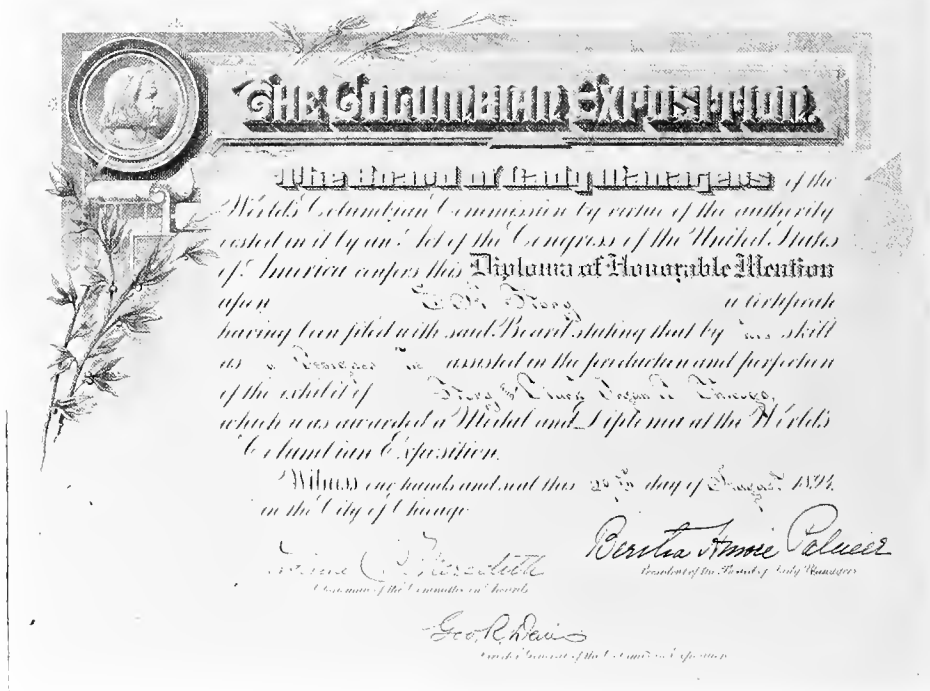 THE COLUMBIAN EXPOSITION.
The Board of Lady Managers of the
World's Columbian Commission by virtue of the authority
vested in it by an Act of the Congress of the United States
of America confers this Diploma of Honorable Mention
upon Story a certificate
having been filed with said Board stating that by his skill
as a Designer he assisted in the production and perfection
of the exhibit of Story & Clark Organ Co Chicago,
which was awarded a Medal and Diploma at the World's
Columbian Exposition.
Witness our hands and seal this 20th day of August 1894
in the City of Chicago
Bertha Honoré Palmer
President of the Board of Lady Managers
Meredith
Chairman of the Committee on Awards
Geo. R. Davis
Director General of the Columbian Exposition